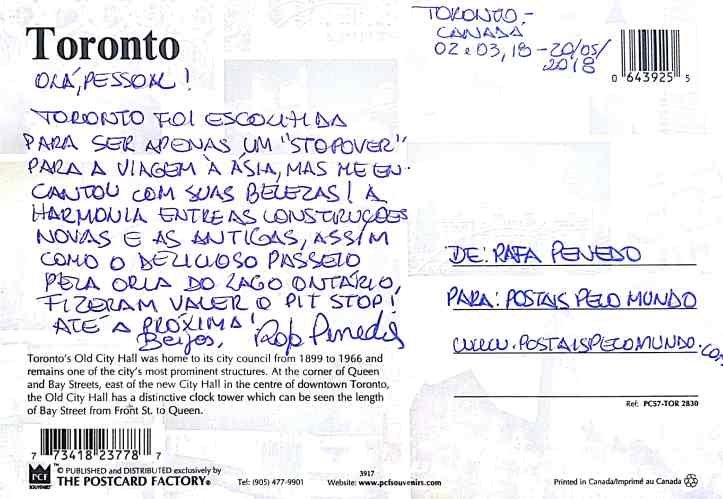 Toronto
OLÁ, PESSOAL!
TORONTO FOI ESCOLHIDA
PARA SER APENAS UM "STOPOVER"
PARA A VIAGEM À ÁSIA, MAS ME EN-
CANTOU COM SUAS BELEZAS! A
HARMONIA ENTRE AS CONSTRUÇÕES
NOVAS E AS ANTIGAS, ASSIM
COMO O DELICIOSO PASSEIO
PELA ORLA DO LAGO ONTÁRIO,
FIZERAM VALER O PIT STOP!
ATÉ A PRÓXIMA!
Beijos,
Toronto's Old City Hall was home to its city council from 1899 to 1966 and
remains one of the city's most prominent structures. At the corner of Queen
and Bay Streets, east of the new City Hall in the centre of downtown Toronto,
the Old City Hall has a distinctive clock tower which can be seen the length
of Bay Street from Front St. to Queen.
7 73418 23778 7
PCF
SOUVENIRS
™
© PUBLISHED and DISTRIBUTED exclusively by
THE POSTCARD FACTORY®
Tel: (905) 477-9901
3917
Website: www.pcfsouvenirs.com
TORONTO -
CANADÁ
02 e 03, 18 - 20/05/
2018
0 643925 5
DE: RAFA PENEDO
PARA: POSTAIS PELO MUNDO
www.POSTAISPELOMUNDO.com
Ref: PC57-TOR 2830
Printed in Canada/Imprimé au Canada